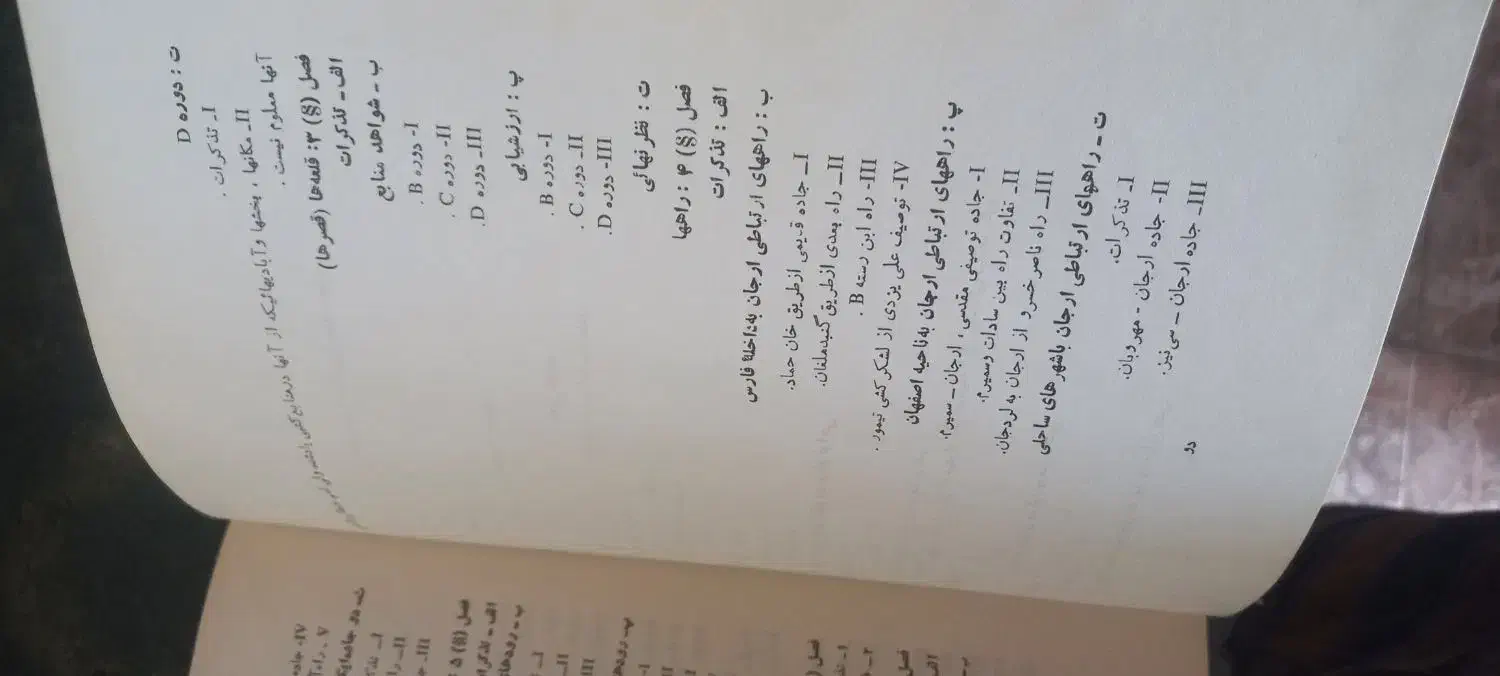 ت : دوره D
I- تذکرات .
II- مکانها ، بخشها و آبادیهائیکه از آنها در منابع
آنها معلوم نیست .
فصل (§) ۳: قلعه‌ها (قصرها)
الف - تذکرات
ب - شواهد منابع
I- دوره B .
II- دوره C .
III- دوره D .
پ : ارزشیابی
I- دوره B .
II- دوره C .
III- دوره D.
ت : نظر نهائی
فصل (§) ۴ : راهها
الف : تذکرات
ب : راههای ارتباطی ارجان به داخلهٔ فارس
I- جاده قدیمی از طریق خان حماد.
II- راه بعدی از طریق گنبد ملغان.
III- راه ابن رسته B .
IV- توصیف علی یزدی از لشکر کشی تیمور .
پ : راههای ارتباطی ارجان به ناحیه اصفهان
I- جاده توصیفی مقدسی ، ارجان - سمیرم.
II- تفاوت راه بین سادات وسمیرم.
III- راه ناصر خسرو از ارجان به لردجان.
ت - راههای ارتباطی ارجان باشهر های ساحلی
I- تذکرات.
II- جاده ارجان - مهروبان.
III- جاده ارجان - سی نیز.
دو
IV- جاده
V - راه
I- تذکر
II- را
III- ج
فصل (§) ۵ :
الف - تذکرات
ب - رودهای
I -
II-
III
I-
II
I
فصل (
فصل
الف
ب -